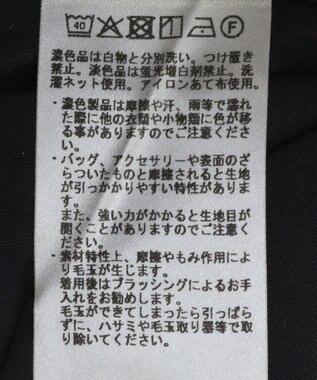 40 F
濃色品は白物と分別洗い。つけ置き
禁止。淡色品は蛍光増白剤禁止。洗
濯ネット使用。アイロンあて布使用。
・濃色製品は摩擦や汗、雨等で濡れ
た際に他の衣類や小物類に色が移
る事がありますのでご注意くださ
い。
・バッグ、アクセサリーや表面のざ
らついたものと摩擦されると生地
が引っかかりやすい特性がありま
す。
また、強い力がかかると生地目が
開くことがありますのでご注意く
ださい。
・素材特性上、摩擦やもみ作用によ
り毛玉が生じます。
着用後はブラッシングによるお手
入れをお勧めします。
毛玉ができてしまったら引っぱら
ずに、ハサミや毛玉取り器等で取
り除いてください。